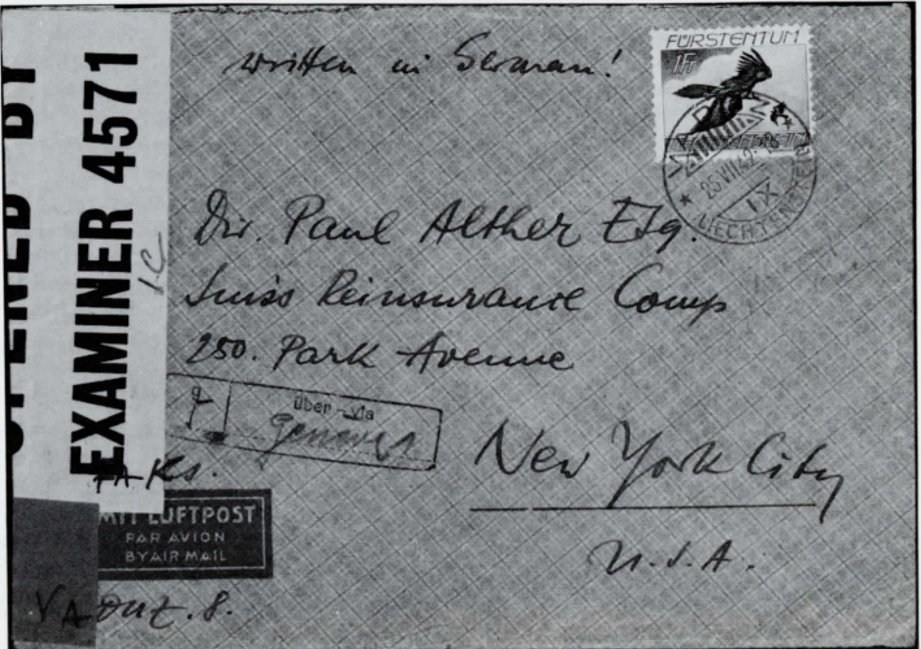 written in German!
FÜRSTENTUM
1 Fr
25.VII.42
IX
LIECHTENSTEIN
OPENED BY
EXAMINER 4571
I.C
Dir. Paul Alther Esq.
Swiss Reinsurance Comp
250. Park Avenue
über - via
New York City
U.S.A.
MIT LUFTPOST
PAR AVION
BY AIR MAIL
VADUZ. 8.